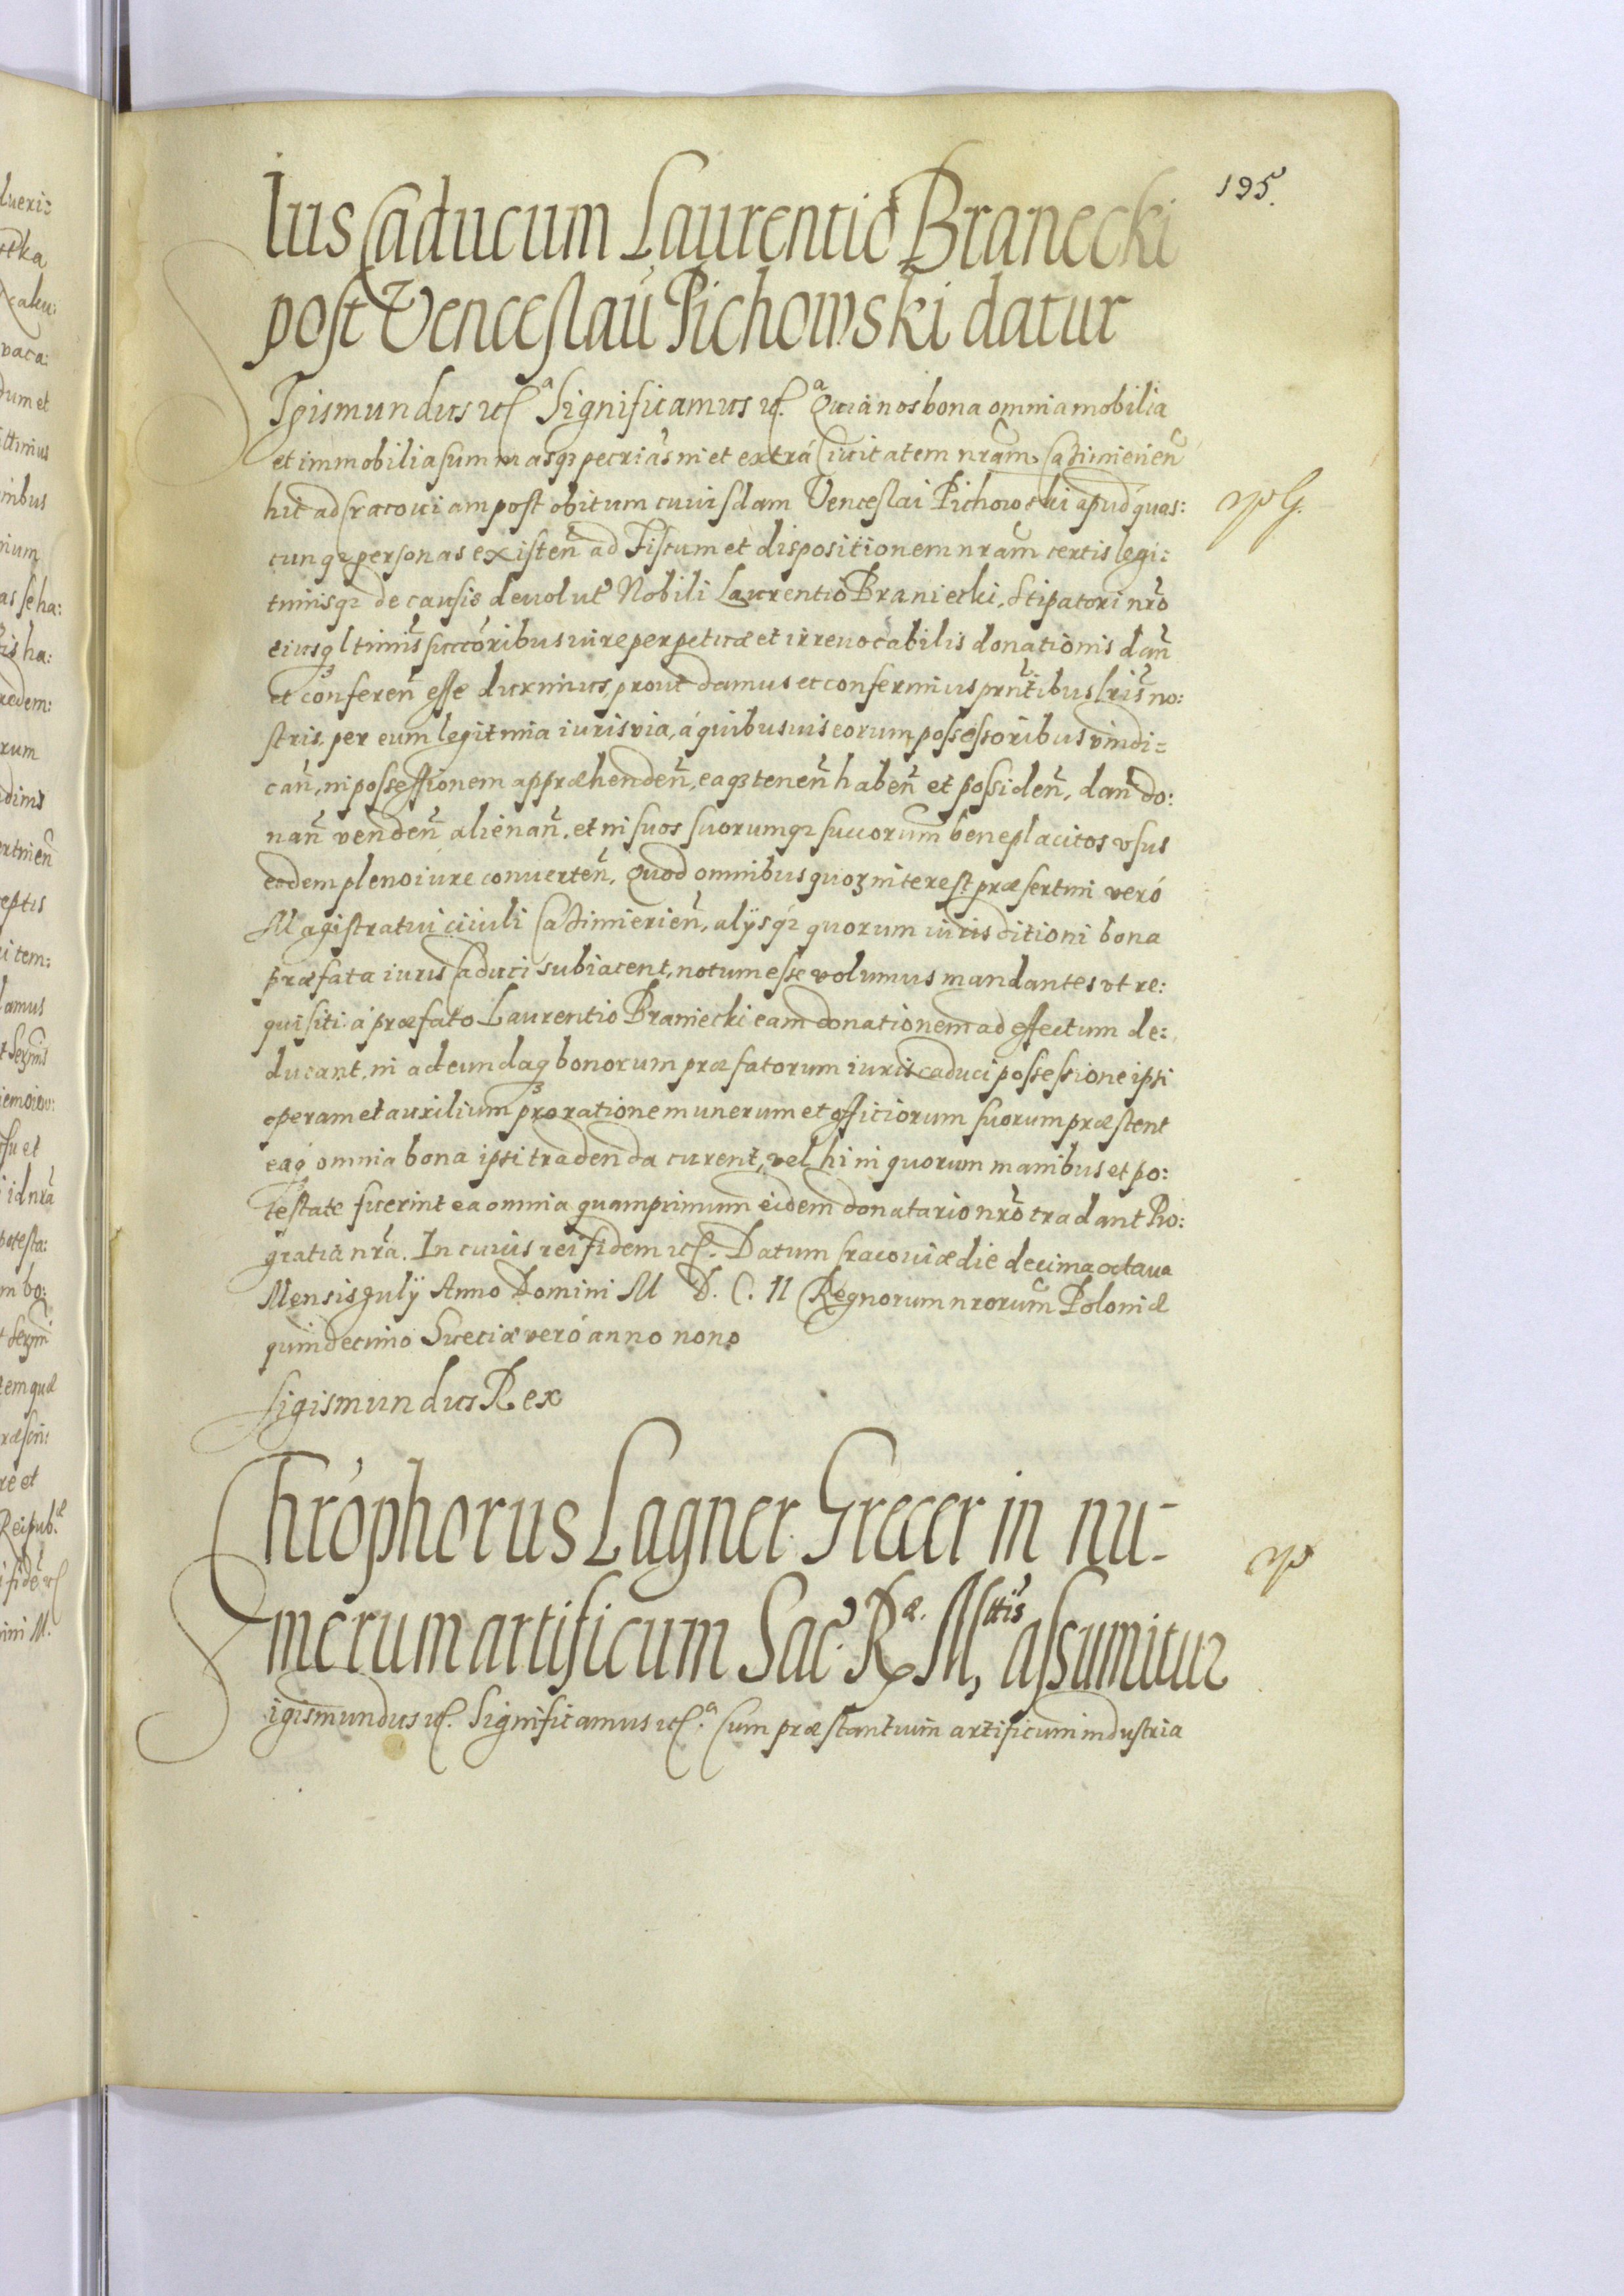 195.
Ius Caducum Laurentio Branecki
post Venceslaū Pichowski datur
Sigismundus etc.ᵃ Significamus etc.ᵃ Quia nos bona omnia mobilia
et immobilia summasq₃ pecrias in et extrá Ciuitatem nram Casimierień
hic ad Cracouiam post obitum cuiusdam Venceslai Pichowski apud quas:
cunq₃ personas existeń ad Fiscum et dispositionem nram certis legi:
timisq₃ de causis deuolut̃ Nobili Laurentio Braniecki, Stipatori nr̃o
eiusq₃ ltimis succoribus iure perpetuæ et irreuocabilis donationis dañ
et conferen̄ esse duximus, prout damus et conferimus prñtibus lris̄ no:
stris, per eum legitima iuris via, á quibusuis eorum possessoribus vindi=
can̄, in possessionem appræhenden̄, eaq₃ tenen̄ haben̄ et possiden̄, dan̄ do:
nan̄ venden̄ alienan̄, et in suos suorumq₃ succorum beneplacitos vsus
eodem pleno iure conuerten̄, Quod omnibus quor₃ interest præsertim veró
Magistratui ciuili Casimierien̄, alÿsq₃ quorum iurisditioni bona
præfata iuris Caduci subiacent, notum esse volumus mandantes vt re:
quisiti á præfato Laurentio Braniecki eam donationem ad effectum de:
ducant, in adeundaq₃ bonorum præfatorum iuris caduci possessione ipsi
operam et auxilium pro ratione munerum et officiorum suorum præstent
eaq₃ omnia bona ipsi tradenda curent, vel hi in quorum manibus et po:
testate fuerint ea omnia quamprimum eidem donatario nr̃o tradant Pro:
gratia nr̃a. In cuius rei fidem etc. Datum Cracouiæ die decima octaua
Mensis Julÿ Anno Domini M D. C. II Regnorum nrorum Poloniæ
quindecimo Sueciæ veró anno nono
Sigismundus Rex
Chrophorus Lagner Grecer in nu-
merum artificum Sac. Rᵃᵉ. Mᵗᵗⁱˢ, assumitur
Sigismundus etc. Significamus etc.ᵃ Cum præstantium artificum industria